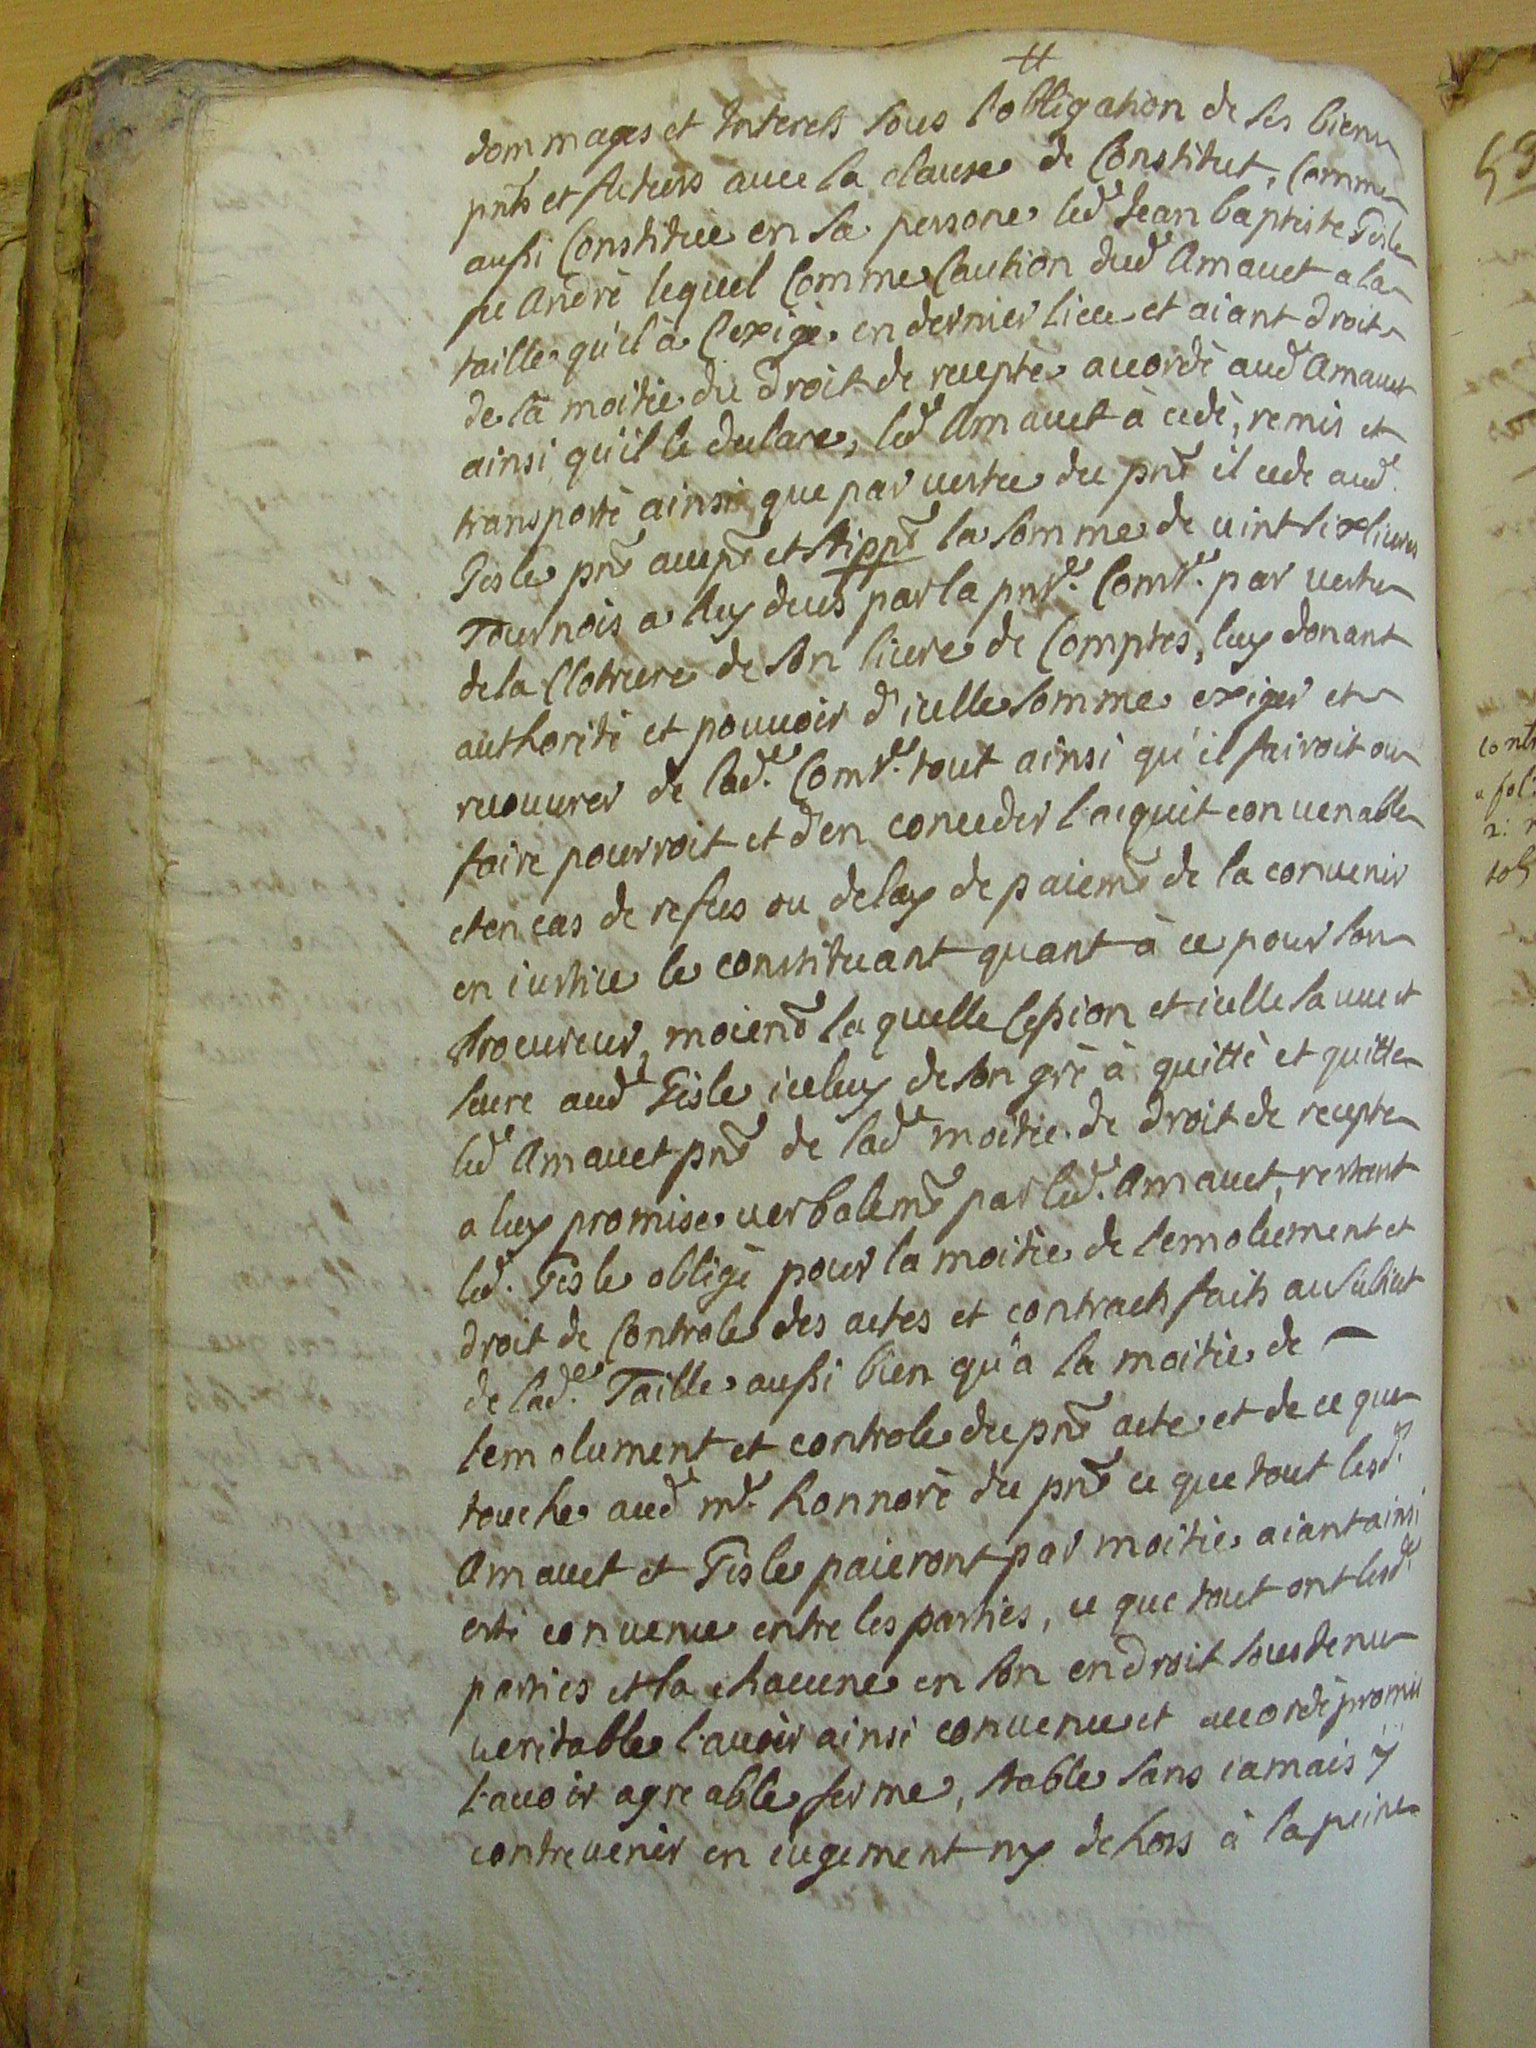 dommages et Interets sous l'obligation de ses biens
pnts et futurs avec la clause de Constitut, Comme
aussi Constitué en sa persone led. Jean baptiste Gisle
fu André lequel Comme Caution dud. Amavet a la
taille qu'il à l'exigé en dernier lieu et aiant droit
de la moitié du droit de recepte accordé aud. Amavet
ainsi qu'il le declare, led. Amavet à cedé, remis et
transporté ainsi que par vertu du pnt il cede aud.
Gisle pnt accept et stippt la somme de vint six livres
Tournois a luy deues par la pnte. Comté. par vertu
de la Cloture de son livre de Comptes, luy donant
authorité et pouvoir d'icelle somme exiger et
recouvrer de lade. Comté. tout ainsi qu'il fairoit ou
faire pourroit et d'en conceder l'acquit convenable
et en cas de refus ou delay de paiemt de la convenir
en iustice le constituant quant à ce pour son
Procureur, moient la quelle Cession et icelle sauve et
seure aud. Gisle iceluy de son gré à quitté et quitte
led. Amavet pnt de lade moitié de droit de recepte
a luy promise verbalemt par led. Amavet, restant
led. Gisle obligé pour la moitié de lemolument et
droit de Controle des actes et contracts faits au subiet
de lade. Taille aussi bien qu'a la moitié de
lemolument et controle du pnt acte et de ce que
touche aud. me. honnoré du pnt ce que tout lesd.
Amavet et Gisle paieront par moitié aiant ainsi
esté convenu entre les parties, ce que tout ont lesd.
parties et la chacune en son endroit soustenu
veritable l'avoir ainsi convenu et accordé promis
l'avoir agreable ferme, stable sans iamais y
contrevenir en iugement ny dehors à la peine
contr
a fol.